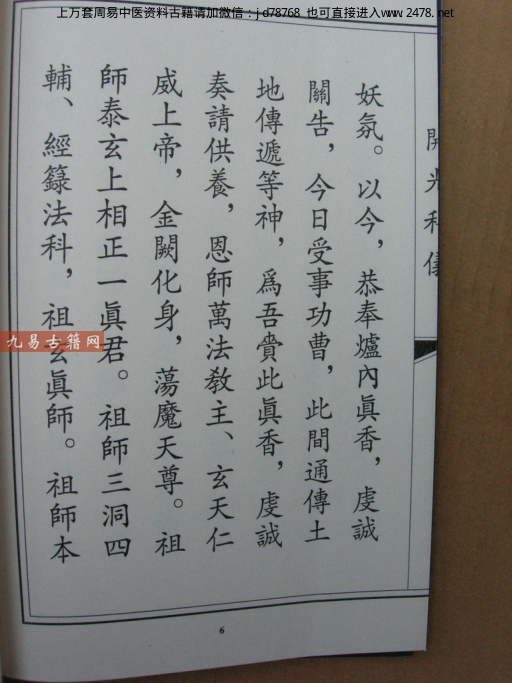 上万套周易中医资料古籍请加微信：jd78768 也可直接进入www.2478.net
開光科儀
妖氛。以今，恭奉爐內眞香，虔誠
關告，今日受事功曹，此間通傳土
地傳遞等神，爲吾賷此眞香，虔誠
奏請供養，恩師萬法教主、玄天仁
威上帝，金闕化身，蕩魔天尊。祖
師泰玄上相正一眞君。祖師三洞四
輔、經籙法科，祖玄眞師。祖師本
九易古籍网
6